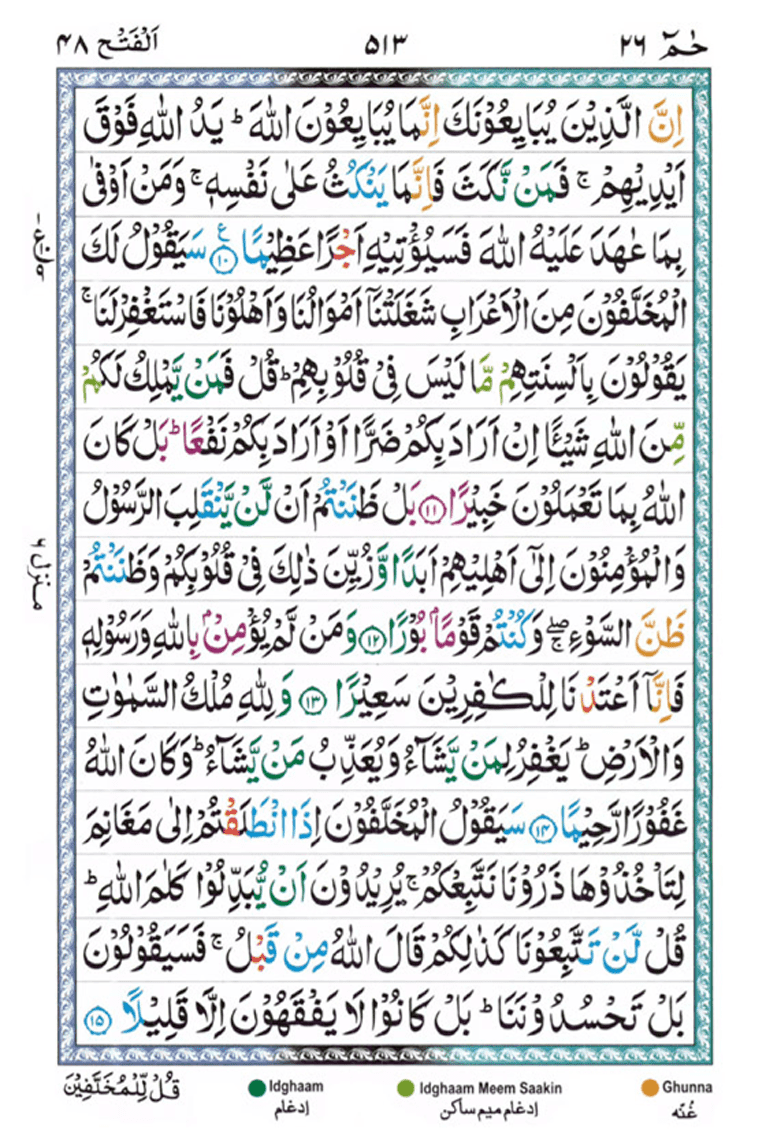 حٰمٓ ۲۶ ۵۱۳ اَلْفَتْح ۴۸
اِنَّ الَّذِيْنَ يُبَايِعُوْنَكَ اِنَّمَا يُبَايِعُوْنَ اللّٰهَ ؕ يَدُ اللّٰهِ فَوْقَ
اَيْدِيْهِمْ ۚ فَمَنْ نَّكَثَ فَاِنَّمَا يَنْكُثُ عَلٰى نَفْسِهٖ ۚ وَمَنْ اَوْفٰى
بِمَا عٰهَدَ عَلَيْهُ اللّٰهَ فَسَيُؤْتِيْهِ اَجْرًا عَظِيْمًا ﴿۱۰﴾ ع سَيَقُوْلُ لَكَ
الْمُخَلَّفُوْنَ مِنَ الْاَعْرَابِ شَغَلَتْنَاۤ اَمْوَالُنَا وَاَهْلُوْنَا فَاسْتَغْفِرْ لَنَا ۚ
يَقُوْلُوْنَ بِاَلْسِنَتِهِمْ مَّا لَيْسَ فِىْ قُلُوْبِهِمْ ؕ قُلْ فَمَنْ يَّمْلِكُ لَكُمْ
مِّنَ اللّٰهِ شَيْئًا اِنْ اَرَادَ بِكُمْ ضَرًّا اَوْ اَرَادَ بِكُمْ نَفْعًا ؕ بَلْ كَانَ
اللّٰهُ بِمَا تَعْمَلُوْنَ خَبِيْرًا ﴿۱۱﴾ بَلْ ظَنَنْتُمْ اَنْ لَّنْ يَّنْقَلِبَ الرَّسُوْلُ
وَالْمُؤْمِنُوْنَ اِلٰٓى اَهْلِيْهِمْ اَبَدًا وَّزُيِّنَ ذٰلِكَ فِىْ قُلُوْبِكُمْ وَظَنَنْتُمْ
ظَنَّ السَّوْءِ ۖۚ وَكُنْتُمْ قَوْمًاۢ بُوْرًا ﴿۱۲﴾ وَمَنْ لَّمْ يُؤْمِنْۢ بِاللّٰهِ وَرَسُوْلِهٖ
فَاِنَّاۤ اَعْتَدْنَا لِلْكٰفِرِيْنَ سَعِيْرًا ﴿۱۳﴾ وَلِلّٰهِ مُلْكُ السَّمٰوٰتِ
وَالْاَرْضِ ؕ يَغْفِرُ لِمَنْ يَّشَآءُ وَيُعَذِّبُ مَنْ يَّشَآءُ ؕ وَكَانَ اللّٰهُ
غَفُوْرًا رَّحِيْمًا ﴿۱۴﴾ سَيَقُوْلُ الْمُخَلَّفُوْنَ اِذَا انْطَلَقْتُمْ اِلٰى مَغَانِمَ
لِتَاْخُذُوْهَا ذَرُوْنَا نَتَّبِعْكُمْ ۚ يُرِيْدُوْنَ اَنْ يُّبَدِّلُوْا كَلٰمَ اللّٰهِ ؕ
قُلْ لَّنْ تَتَّبِعُوْنَا كَذٰلِكُمْ قَالَ اللّٰهُ مِنْ قَبْلُ ۚ فَسَيَقُوْلُوْنَ
بَلْ تَحْسُدُوْنَنَا ؕ بَلْ كَانُوْا لَا يَفْقَهُوْنَ اِلَّا قَلِيْلًا ﴿۱۵﴾
منزل ۶
قُلْ لِّلْمُخَلَّفِيْنَ
Idghaam
ادغام
Idghaam Meem Saakin
ادغام میم ساکن
Ghunna
غُنّہ